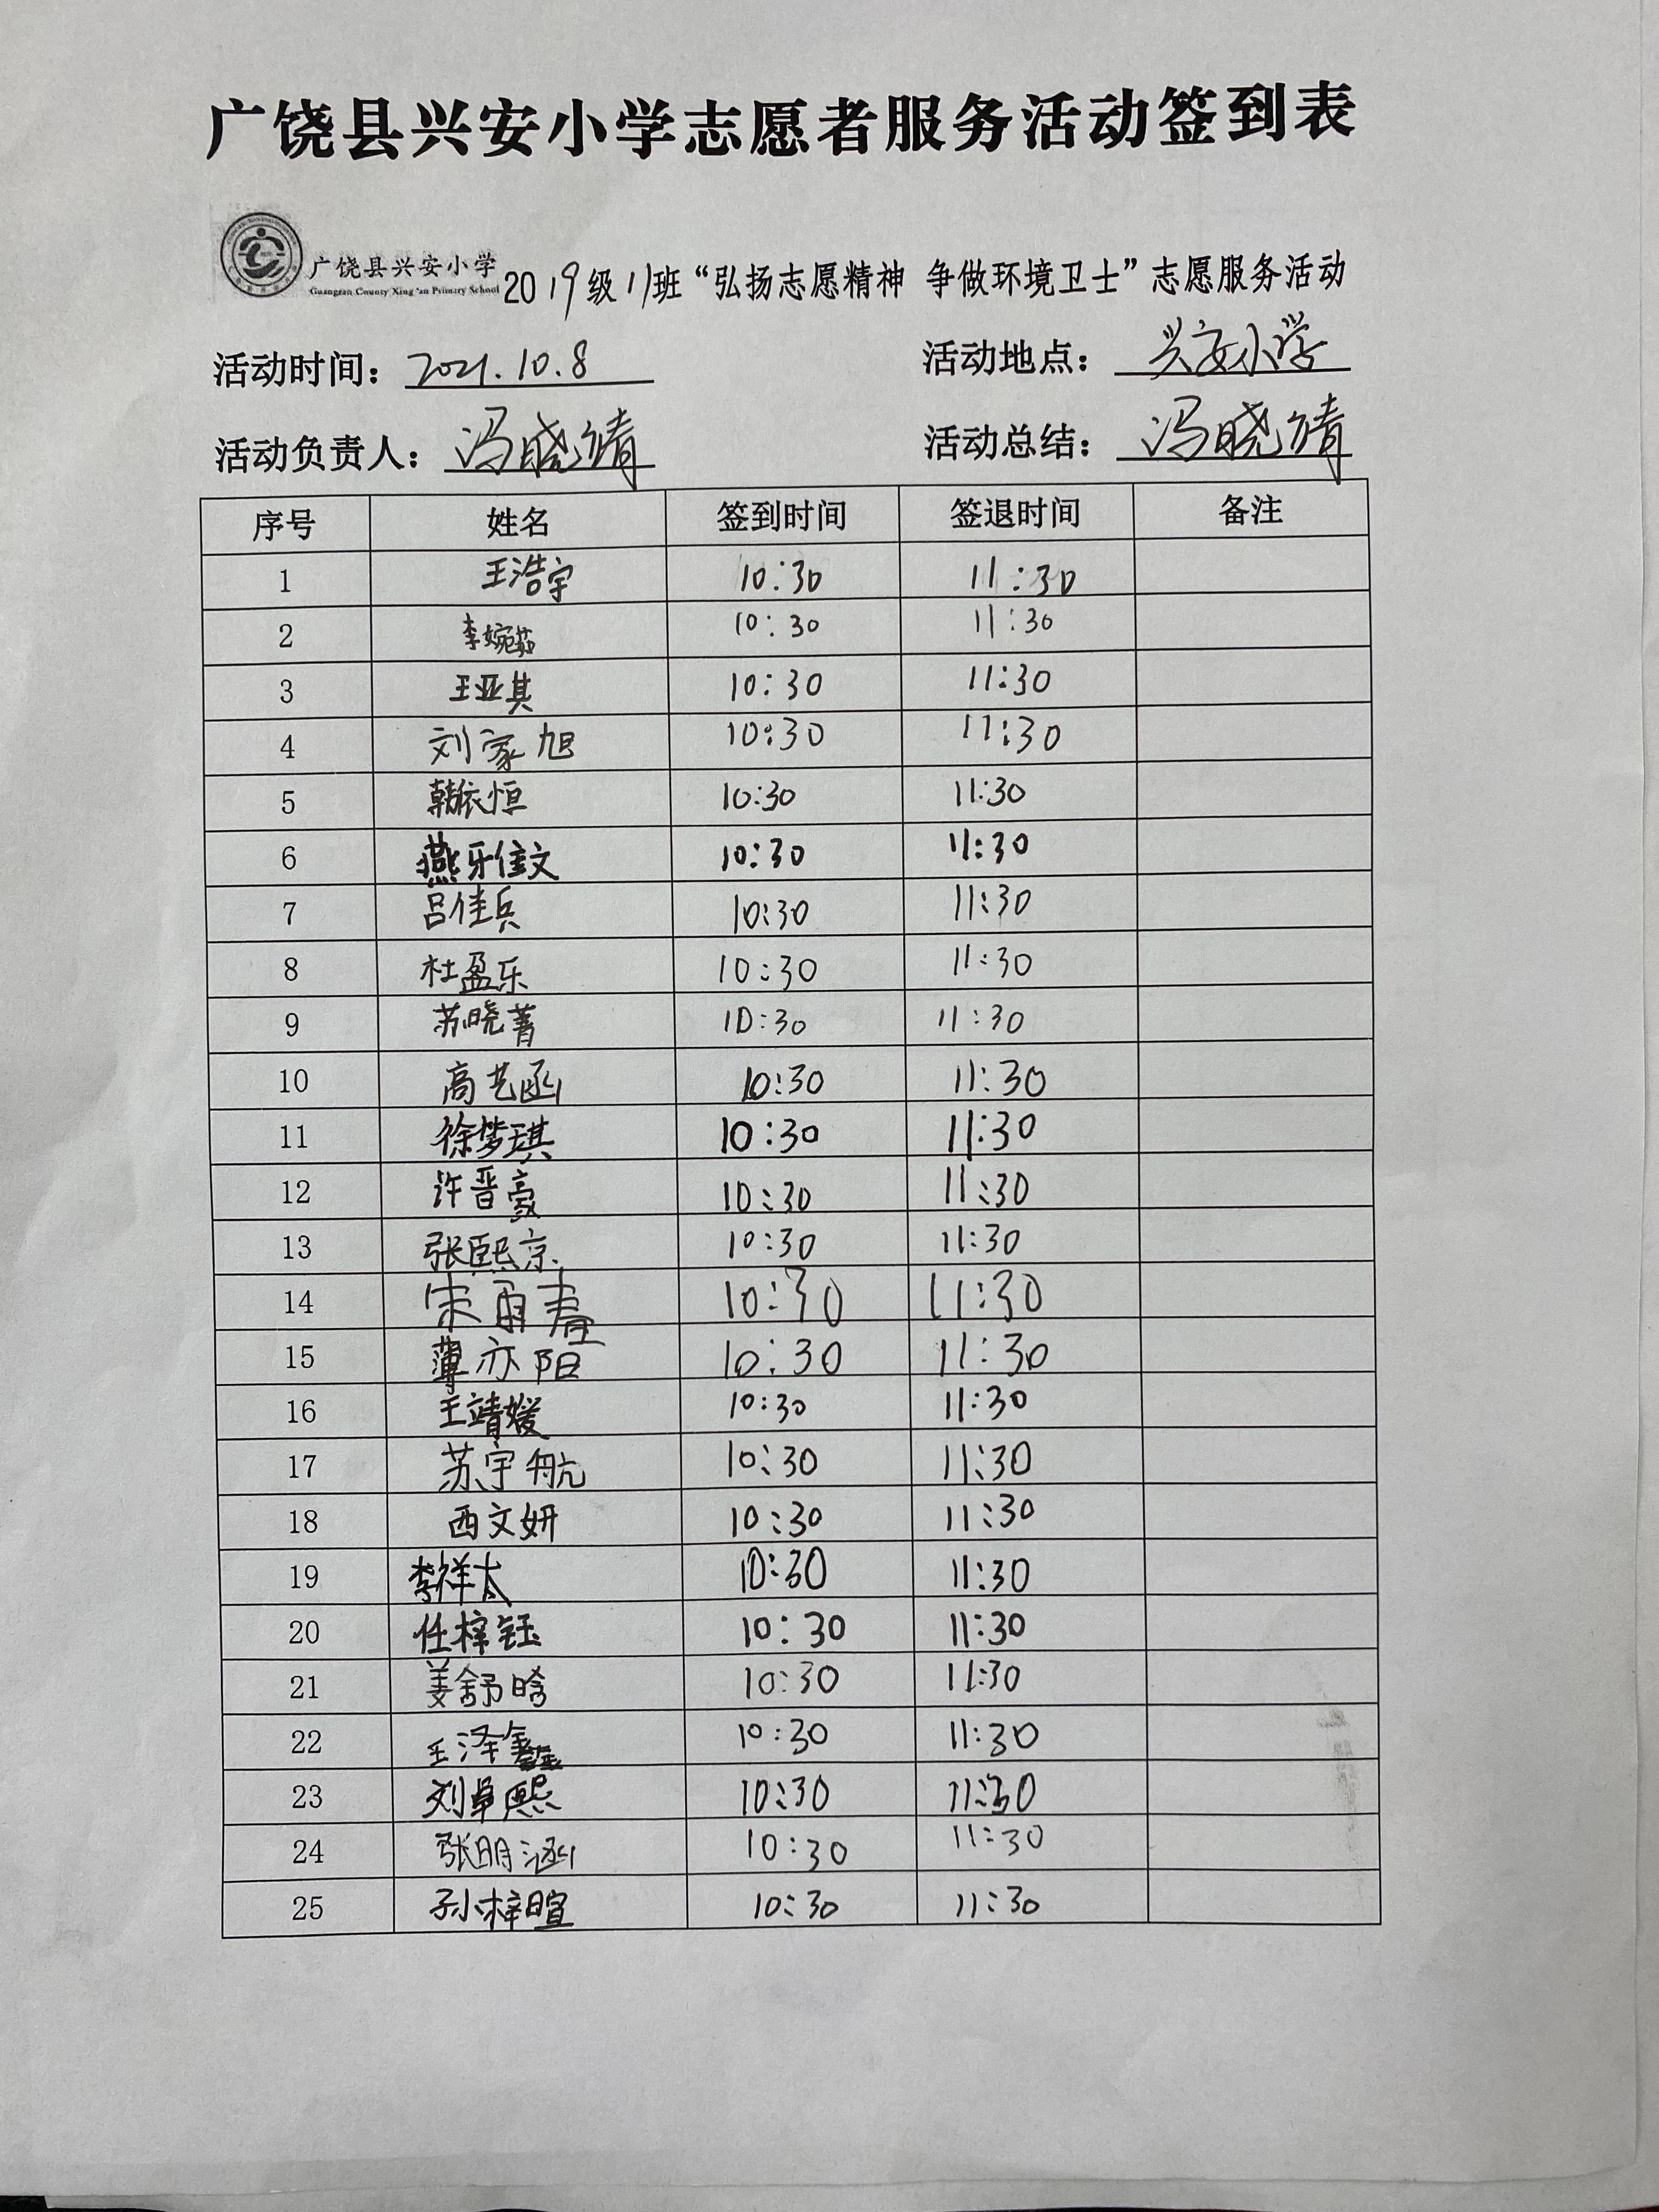 广饶县兴安小学志愿者服务活动签到表
广饶县兴安小学
Guangrao County Xing'an Primary School
2019级11班“弘扬志愿精神 争做环境卫士”志愿服务活动
活动时间：2021.10.8 活动地点：兴安小学
活动负责人：冯晓倩 活动总结：冯晓倩
序号 姓名 签到时间 签退时间 备注
1 王浩宇 10:30 11:30
2 李婉茹 10:30 11:30
3 王亚其 10:30 11:30
4 刘家旭 10:30 11:30
5 韩依恒 10:30 11:30
6 燕牙佳文 10:30 11:30
7 吕佳兵 10:30 11:30
8 杜盈乐 10:30 11:30
9 苏晓菁 10:30 11:30
10 高艺函 10:30 11:30
11 徐梦琪 10:30 11:30
12 许晋豪 10:30 11:30
13 张熙京 10:30 11:30
14 10:30 11:30
15 薄亦阳 10:30 11:30
16 王靖媛 10:30 11:30
17 苏宇航 10:30 11:30
18 西文妍 10:30 11:30
19 李祥太 10:30 11:30
20 任梓钰 10:30 11:30
21 姜舒晗 10:30 11:30
22 王泽鑫 10:30 11:30
23 刘卓熙 10:30 11:30
24 张明涵 10:30 11:30
25 孙梓暄 10:30 11:30